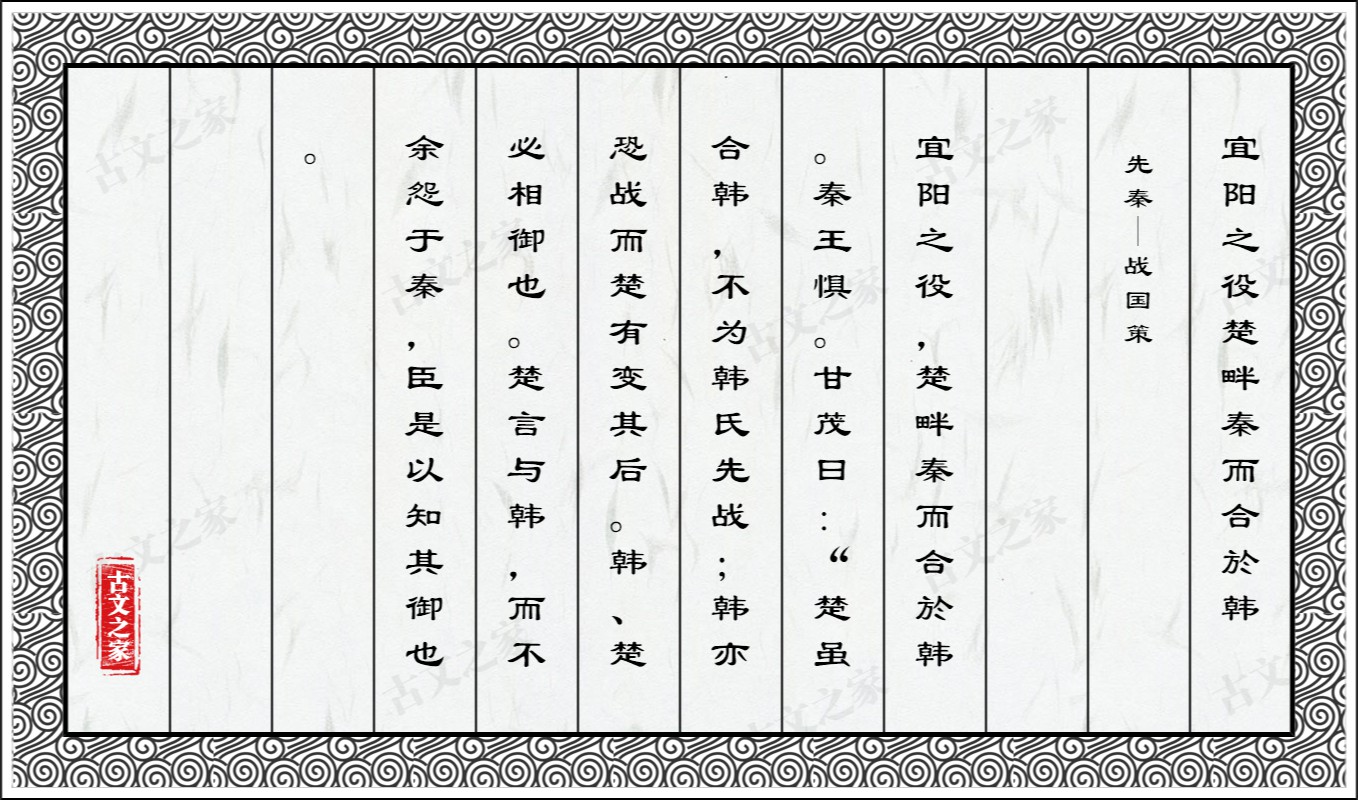 宜阳之役楚畔秦而合於韩
先秦—战国策
宜阳之役，楚畔秦而合於韩
。秦王惧。甘茂曰：“楚虽
合韩，不为韩氏先战；韩亦
恐战而楚有变其后。韩、楚
必相御也。楚言与韩，而不
余怨于秦，臣是以知其御也
。
古文之家